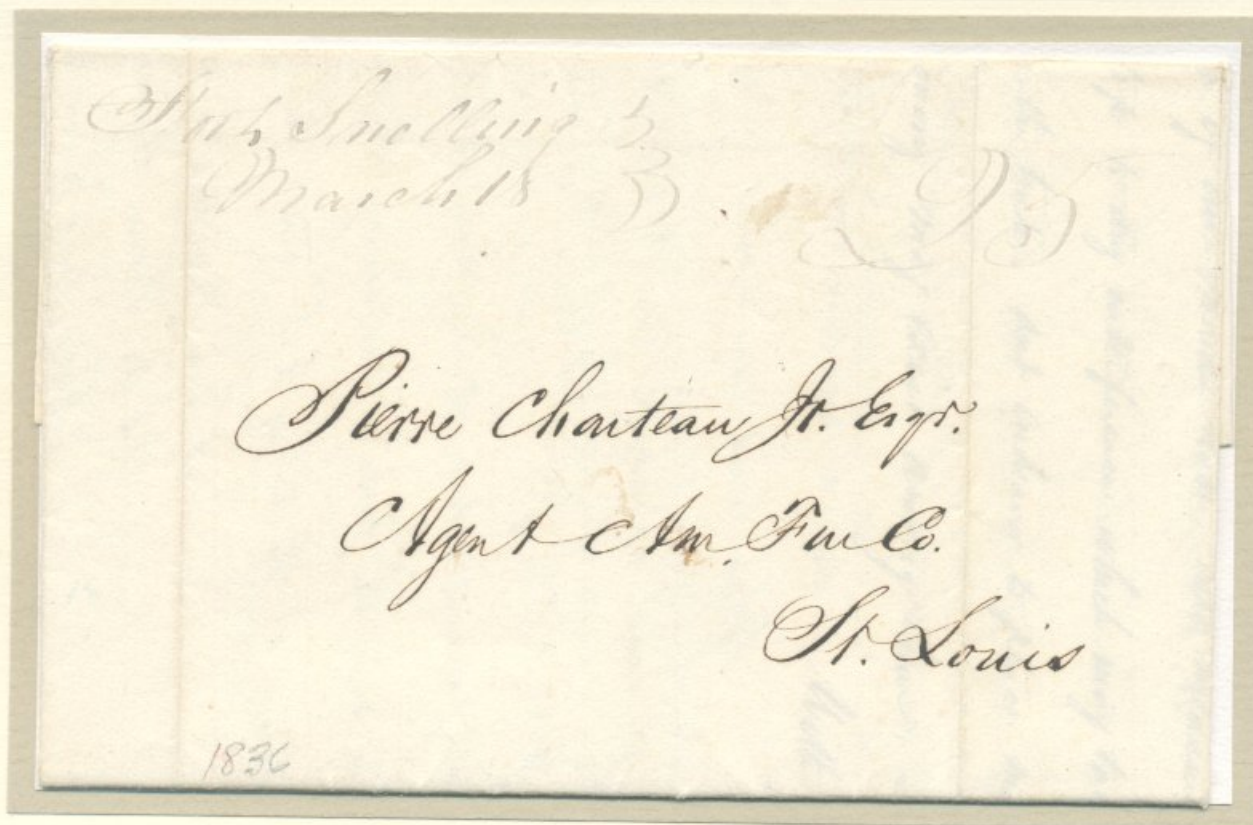 Fort Snelling
March 18
25
Pierre Chouteau Jr. Esqr.
Agent Am. Fur Co.
St. Louis
1836